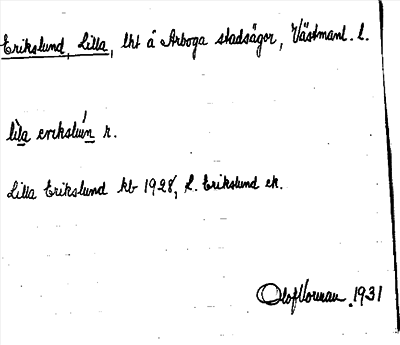 Erikslund, Lilla, lht å Arboga stadsägor, Västmanl. l.
lìla erikslun r.
Lilla Erikslund kb 1928, L. Erikslund ek.
Olof Norman. 1931